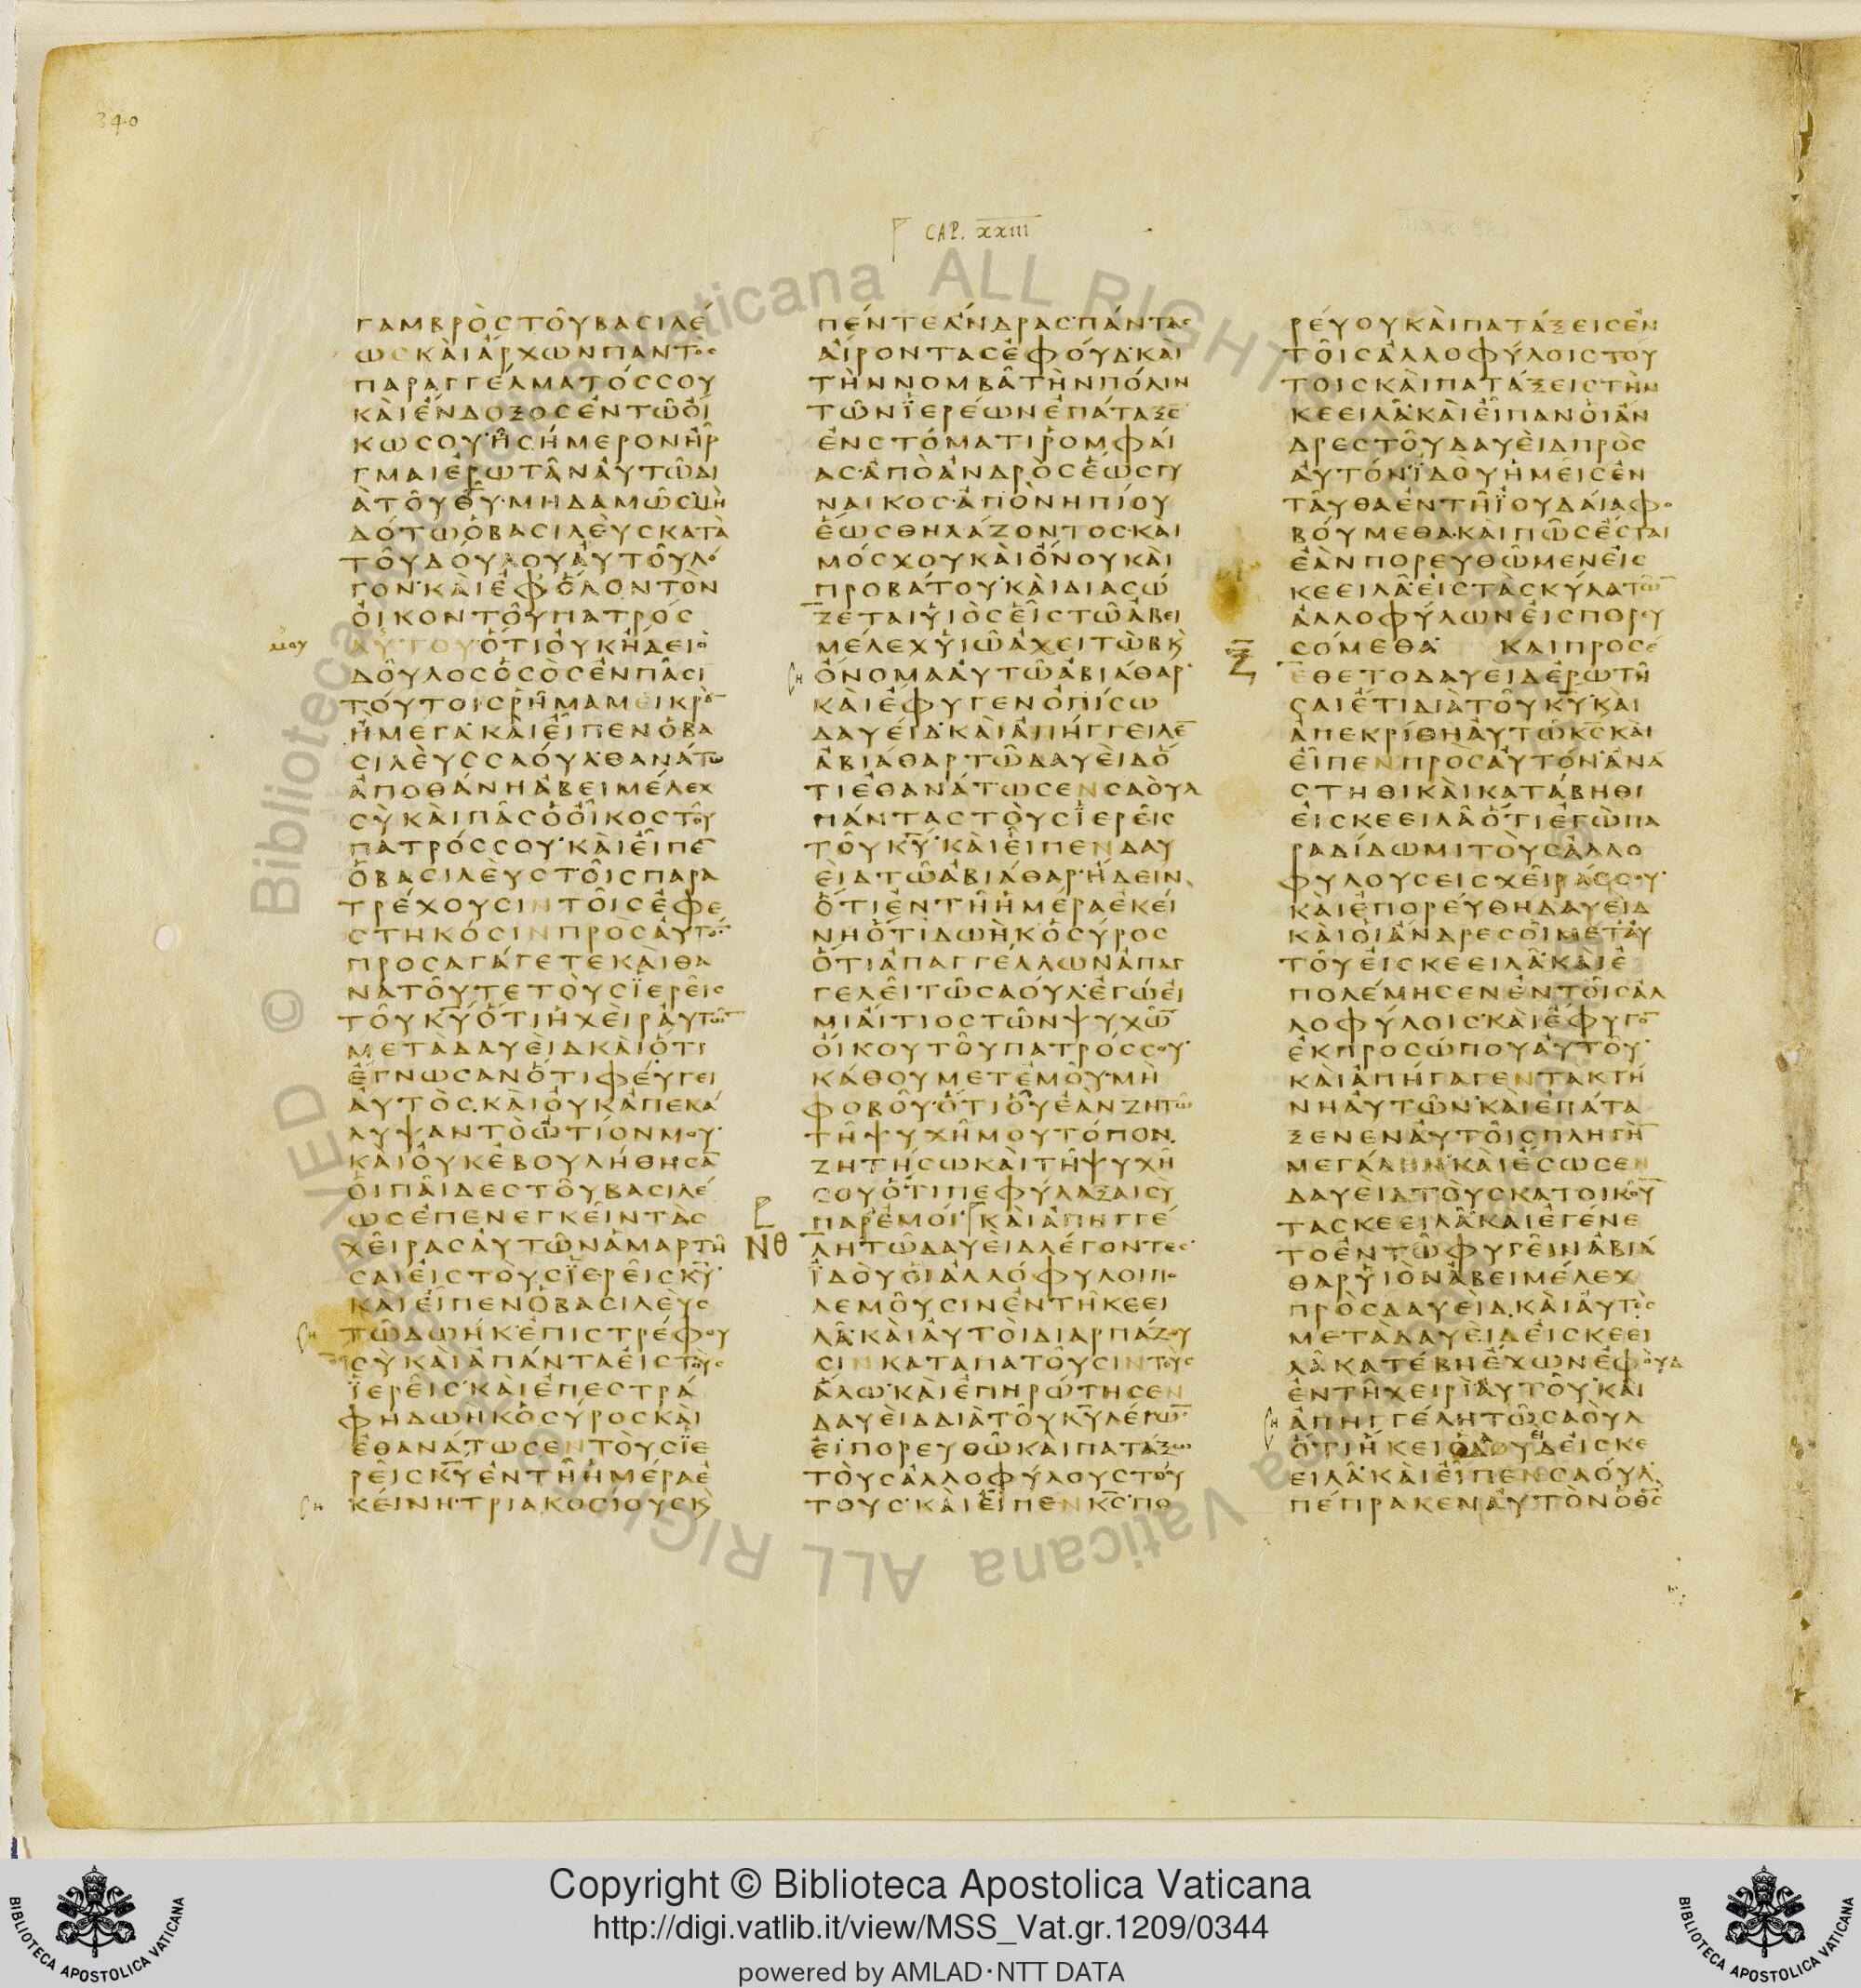 340
CAP. XXIII
ΓΑΜΒΡὸϹΤΟῦΒΑϹΙΛΈ
ΩϹΚΑὶἌΡΧΩΝΠΑΝΤὸϹ
ΠΑΡΑΓΓΈΛΜΑΤΌϹϹΟΥ
ΚΑὶἜΝΔΟΞΟϹἘΝΤῶΟἴ
ΚΩϹΟΥ·ἮϹΉΜΕΡΟΝἮΡ
ΓΜΑΙἘΡΩΤᾶΝΑὐΤῶΔΙ
ᾺΤΟῦΘ̅Υ̅·ΜΗΔΑΜῶϹΜῊ
ΔΌΤΩὉΒΑϹΙΛΕὺϹΚΑΤᾺ
ΤΟῦΔΟΎΛΟΥΑὐΤΟῦΛΌ
ΓΟΝ·ΚΑὶἘΦὍΛΟΝΤὸΝ
ΟἶΚΟΝΤΟῦΠΑΤΡΌϹ
μου
ΑὐΤΟΥὍΤΙΟὐΚἬΔΕΙὁ
ΔΟῦΛΟϹὉϹὸϹἘΝΠᾶϹΙ
ΤΟΎΤΟΙϹῬῆΜΑΜΕΙΚΡὸ̅
ἪΜΈΓΑ·ΚΑὶΕἶΠΕΝὉΒΑ
ϹΙΛΕὺϹϹΑΟΎΛ·ΘΑΝΆΤΩ
ἈΠΟΘΆΝΗἈΒΕΙΜΈΛΕΧ
ϹὺΚΑὶΠᾶϹὉΟἶΚΟϹΤΟῦ
ΠΑΤΡΌϹϹΟΥ·ΚΑὶΕἶΠΕ̅
ὉΒΑϹΙΛΕὺϹΤΟῖϹΠΑΡΑ
ΤΡΈΧΟΥϹΙΝΤΟῖϹἘΦΕ
ϹΤΗΚΌϹΙΝΠΡὸϹΑὐΤΌ̅
ΠΡΟϹΑΓΆΓΕΤΕΚΑὶΘΑ
ΝΑΤΟῦΤΕΤΟὺϹΪΕΡΕῖϹ
ΤΟῦΚ̅Υ̅ὍΤΙἩΧΕὶΡΑὐΤῶ̅
ΜΕΤᾺΔΑΥΕὶΔΚΑὶὍΤΙ
ἜΓΝΩϹΑΝὍΤΙΦΕΎΓΕΙ
ΑὐΤὸϹ.ΚΑὶΟὐΚἈΠΕΚΆ
ΛΥΨΑΝΤὸὨΤΊΟΝΜΟΥ·
ΚΑὶΟὐΚἘΒΟΥΛΉΘΗϹΑ̅
ΟἹΠΑῖΔΕϹΤΟῦΒΑϹΙΛΈ
ΩϹἘΠΕΝΕΓΚΕῖΝΤᾺϹ
ΧΕῖΡΑϹΑὐΤῶΝἉΜΑΡΤῆ
ϹΑΙΕἰϹΤΟὺϹΪΕΡΕῖϹΚ̅Υ̅·
ΚΑΙΕἶΠΕΝὉΒΑϹΙΛΕὺϹ
ΤῶΔΩΉΚ·ἘΠΙϹΤΡΈΦΟΥ
ϹὺΚΑὶἈΠΆΝΤΑΕἰϹΤΟὺϹ
ΪΕΡΕῖϹ·ΚΑὶἘΠΕϹΤΡΆ
ΦΗΔΩῊΚὉϹΎΡΟϹΚΑὶ
ἘΘΑΝΆΤΩϹΕΝΤΟὺϹΪΕ
ΡΕῖϹΚ̅Υ̅ἘΝΤῆἩΜΈΡΑἘ
ΚΕΊΝΗ·ΤΡΙΑΚΟϹΊΟΥϹΚϏ
ΠΈΝΤΕἌΝΔΡΑϹ·ΠΆΝΤΑϹ
ΑἴΡΟΝΤΑϹἘΦΟΎΔ·ΚΑὶ
ΤῊΝΝΟΜΒᾶΤῊΝΠΌΛΙΝ
ΤῶΝΪΕΡΈΩΝἘΠΆΤΑΞΕ
ἘΝϹΤΌΜΑΤΙῬΟΜΦΑΊ
ΑϹ·ἈΠὸἈΝΔΡὸϹἝΩϹΓΥ
ΝΑΙΚΟϹ·ἈΠὸΝΗΠΊΟΥ
ἝΩϹΘΗΛΆΖΟΝΤΟϹ·ΚΑΙ
ΜΌϹΧΟΥΚΑὶὌΝΟΥΚΑὶ
ΠΡΟΒΆΤΟΥ·ΚΑὶΔΙΑϹΏ
ΖΕΤΑΙΥἹὸϹΕἷϹΤῶἈΒΕΙ
ΜΈΛΕΧΥἹῶἈΧΕΙΤὼΒΚϏ
ὌΝΟΜΑΑὐΤῶἈΒΙΆΘΑΡ·
ΚΑὶἜΦΥΓΕΝὈΠΊϹΩ
ΔΑΥΕΊΔ·ΚΑὶἈΠΉΓΓΕΙΛΕ̅
ἈΒΙΆΘΑΡΤῶΔΑΥΕὶΔὍ
ΤΙἘΘΑΝΆΤΩϹΕΝϹΑΟὺΛ
ΠΆΝΤΑϹΤΟὺϹΪΕΡΕῖϹ
ΤΟῦΚ̅Υ̅·ΚΑὶΕἶΠΕΝΔΑΥ
ΕὶΔΤῶἈΒΙΆΘΑΡ·ἬΔΕΙΝ
ὍΤΙἘΝΤῆἩΜΈΡΑἘΚΕΊ
ΝΗὍΤΙΔΩῊΚὉϹΎΡΟϹ
ὍΤΙἈΠΑΓΓΈΛΛΩΝἈΠΑΓ
ΓΕΛΕῖΤῶϹΑΟΎΛ·ἘΓΏΕἰ
ΜΙΑἴΤΙΟϹΤῶΝΨΥΧῶ̅
ΟἴΚΟΥΤΟῦΠΑΤΡΌϹϹΟΥ·
ΚΆΘΟΥΜΕΤἘΜΟῦ·ΜῊ
ΦΟΒΟῦ·ὍΤΙΟὗἘΑΝΖΗΤῶ
ΤῆΨΥΧῆΜΟΥΤΌΠΟΝ.
ΖΗΤΉϹΩΚΑὶΤῆΨΥΧῆ
ϹΟΥὍΤΙΠΕΦΎΛΑΞΑΙϹὺ
ΠΑΡἘΜΟΊ·ΚΑὶἈΠΗΓΓΈ
ΝΘ
ΛΗΤῶΔΑΥΕὶΔΛΈΓΟΝΤΕϹ·
ΪΔΟὺΟἹἈΛΛΌΦΥΛΟΙΠΟ
ΛΕΜΟῦϹΙΝἘΝΤῆΚΕΕΙ
ΛᾶΚΑὶΑὐΤΟὶΔΙΑΡΠΆΖΟΥ
ϹΙΝΚΑΤΑΠΑΤΟῦϹΙΝΤΟὺϹ
ἍΛΩ·ΚΑὶἘΠΗΡΏΤΗϹΕΝ
ΔΑΥΕὶΔΔΙᾺΤΟῦΚ̅Υ̅ΛΈΓΩ̅·
ΕἰΠΟΡΕΥΘῶΚΑὶΠΑΤΆΞΩ
ΤΟὺϹἈΛΛΟΦΎΛΟΥϹΤΟΎ
ΤΟΥϹ·ΚΑὶΕἶΠΕΝΚ̅Ϲ̅·ΠΟ
ΡΕΎΟΥΚΑὶΠΑΤΆΞΕΙϹἘΝ
ΤΟῖϹἈΛΛΟΦΎΛΟΙϹΤΟΎ
ΤΟΙϹΚΑὶΠΑΤΆΞΕΙϹΤῊΝ
ΚΕΕΙΛᾶ·ΚΑὶΕἶΠΑΝΟἹἌΝ
ΔΡΕϹΤΟῦΔΑΥΕὶΔΠΡὸϹ
ΑὐΤΌΝ·ΪΔΟὺἩΜΕῖϹἘΝ
ΤΑῦΘΑἘΝΤῆΪΟΥΔΑΊΑΦΟ
ΒΟΎΜΕΘΑ·ΚΑὶΠῶϹἜϹΤΑΙ
ἘᾺΝΠΟΡΕΥΘῶΜΕΝΕἰϹ
ΚΕΕΙΛᾶ·ΕἰϹΤᾺϹΚῦΛΑΤῶ̅
ἈΛΛΟΦΎΛΩΝΕἰϹΠΟΡΕΥ
ϹΌΜΕΘΑ· ΚΑΙΠΡΟϹΈ
Ξ
ΘΕΤΟΔΑΥΕὶΔἘΡΩΤῆ
ϹΑΙἜΤΙΔΙᾺΤΟῦΚ̅Υ̅·ΚΑὶ
ἈΠΕΚΡΊΘΗΑὐΤῶΚ̅Ϲ̅ΚΑὶ
ΕἶΠΕΝΠΡὸϹΑὐΤΌΝ·ἈΝΆ
ϹΤΗΘΙΚΑὶΚΑΤΆΒΗΘΙ
ΕἰϹΚΕΕΙΛᾶὍΤΙἘΓὼΠΑ
ΡΑΔΊΔΩΜΙΤΟὺϹἈΛΛΟ
ΦΥΛΟΥϹΕΙϹΧΕῖΡΆϹϹΟΥ·
ΚΑὶἘΠΟΡΕΎΘΗΔΑΥΕὶΔ
ΚΑὶΟἹἌΝΔΡΕϹΟἹΜΕΤΑὐ
ΤΟῦΕἰϹΚΕΕΙΛᾶ·ΚΑὶἘ
ΠΟΛΈΜΗϹΕΝἘΝΤΟῖϹἈΛ
ΛΟΦΎΛΟΙϹ·ΚΑὶἜΦΥΓΟ̅
ἘΚΠΡΟϹΏΠΟΥΑὐΤΟῦ·
ΚΑὶἈΠΉΓΑΓΕΝΤᾺΚΤΉ
ΝΗΑὐΤῶΝ·ΚΑὶἘΠΆΤΑ
ΞΕΝΕΝΑὐΤΟῖϹΠΛΗΓῊ̅
ΜΕΓΆΛΗΝ·ΚΑὶἜϹΩϹΕΝ
ΔΑΥΕὶΔΤΟὺϹΚΑΤΟΙΚΟῦ̅
ΤΑϹΚΕΕΙΛᾶ·ΚΑΙἘΓΈΝΕ
ΤΟἘΝΤῶΦΥΓΕῖΝἈΒΙΆ
ΘΑΡΥἹὸΝἈΒΕΙΜΈΛΕΧ
ΠΡὸϹΔΑΥΕὶΔ.ΚΑὶΑὐΤὸϹ
ΜΕΤᾺΔΑΥΕὶΔΕἰϹΚΕΕΙ
ΛᾶΚΑΤΈΒΗἜΧΩΝἘΦΟὺΔ
ἘΝΤῆΧΕΙΡὶΑὐΤΟῦ·ΚΑὶ
ἈΠΗΓΓΈΛΗΤῶϹΑΟὺΛ
ὍΤΙἭΚΕΙὉΔΑΥΕὶΔΕἰϹΚΕ
ΕΙΛᾶ·ΚΑὶΕἶΠΕΝϹΑΟΎΛ.
ΠΈΠΡΑΚΕΝΑὐΤὸΝὉΘ̅Ϲ̅
Copyright © Biblioteca Apostolica Vaticana
http://digi.vatlib.it/view/MSS_Vat.gr.1209/0344
powered by AMLAD·NTT DATA
BIBLIOTECA APOSTOLICA VATICANA
BIBLIOTECA APOSTOLICA VATICANA